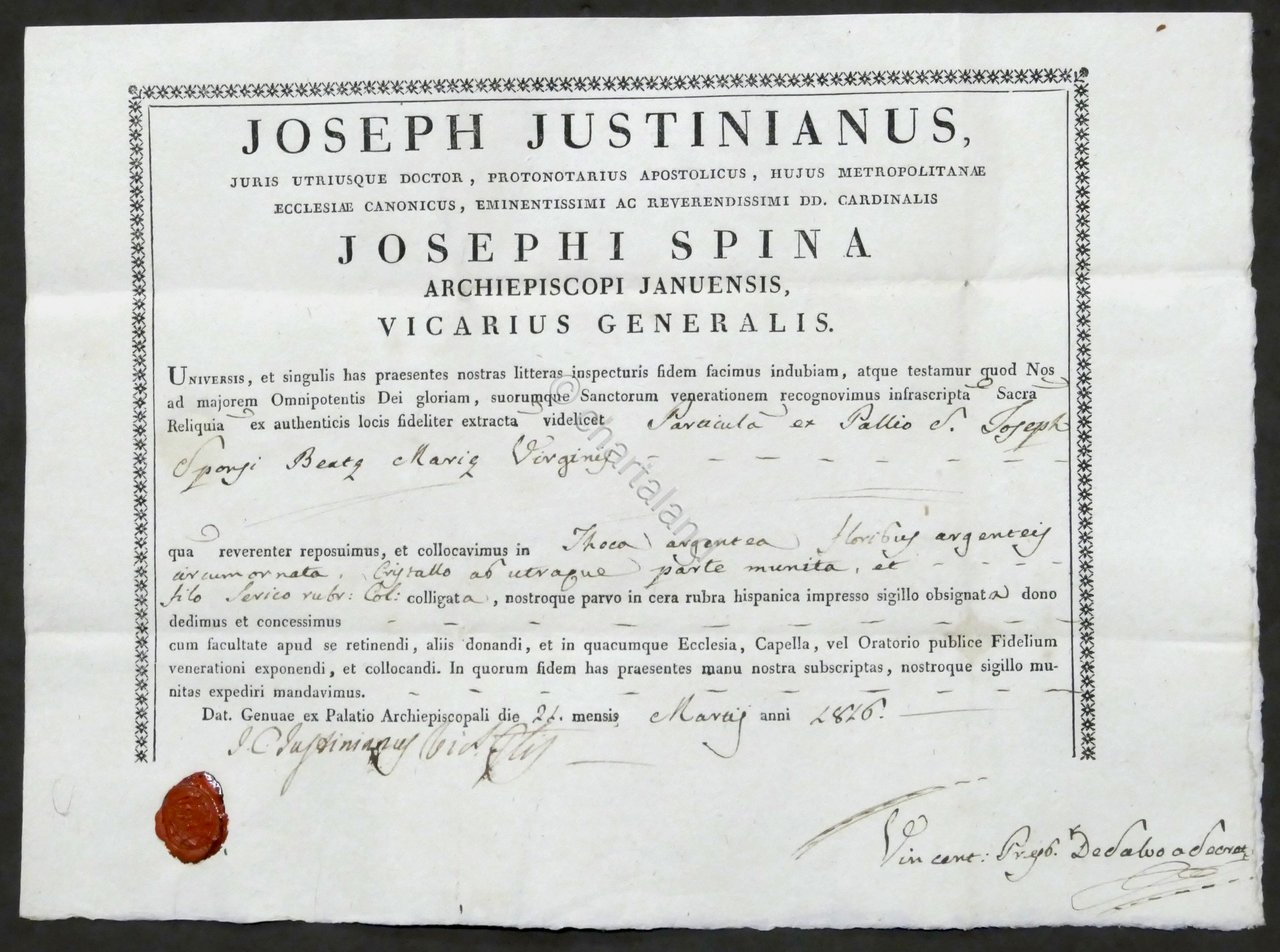 JOSEPH JUSTINIANUS,
JURIS UTRIUSQUE DOCTOR, PROTONOTARIUS APOSTOLICUS, HUJUS METROPOLITANÆ
ECCLESIÆ CANONICUS, EMINENTISSIMI AC REVERENDISSIMI DD. CARDINALIS
JOSEPHI SPINA
ARCHIEPISCOPI JANUENSIS,
VICARIUS GENERALIS.
UNIVERSIS, et singulis has praesentes nostras litteras inspecturis fidem facimus indubiam, atque testamur quod Nos
ad majorem Omnipotentis Dei gloriam, suorumque Sanctorum venerationem recognovimus infrascriptã Sacrã
Reliquiã ex authenticis locis fideliter extractã videlicet Particulã ex Pallio S. Joseph
Sponsi Beatę Marię Virginis
quã reverenter reposuimus, et collocavimus in Theca argentea floribus argenteis
circumornata, Cristallo ab utraque parte munita, et
filo Serico rubr: Col: colligata, nostroque parvo in cera rubra hispanica impresso sigillo obsignata dono
dedimus et concessimus
cum facultate apud se retinendi, aliis donandi, et in quacumque Ecclesia, Capella, vel Oratorio publice Fidelium
venerationi exponendi, et collocandi. In quorum fidem has praesentes manu nostra subscriptas, nostroque sigillo mu-
nitas expediri mandavimus.
Dat. Genuae ex Palatio Archiepiscopali die 21. mensis Martij anni 1816.
J. C. Justinianus Vic. Glis
Vincent: Presb. DeSalvo a Secret.
© chartaland